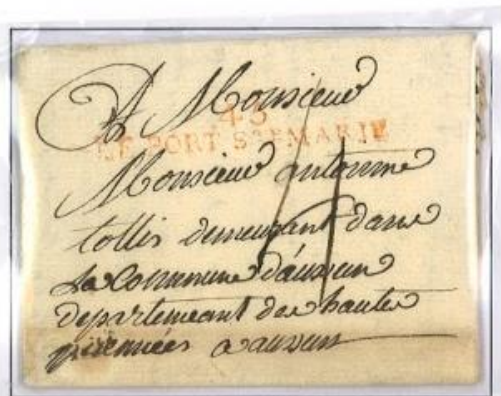 A Monsieur
45
LE PORT STE MARIE
Monsieur antoinne
tollis demeurant dans
la Commune d'aussun
departemeant des hautes
pirennées a aussun